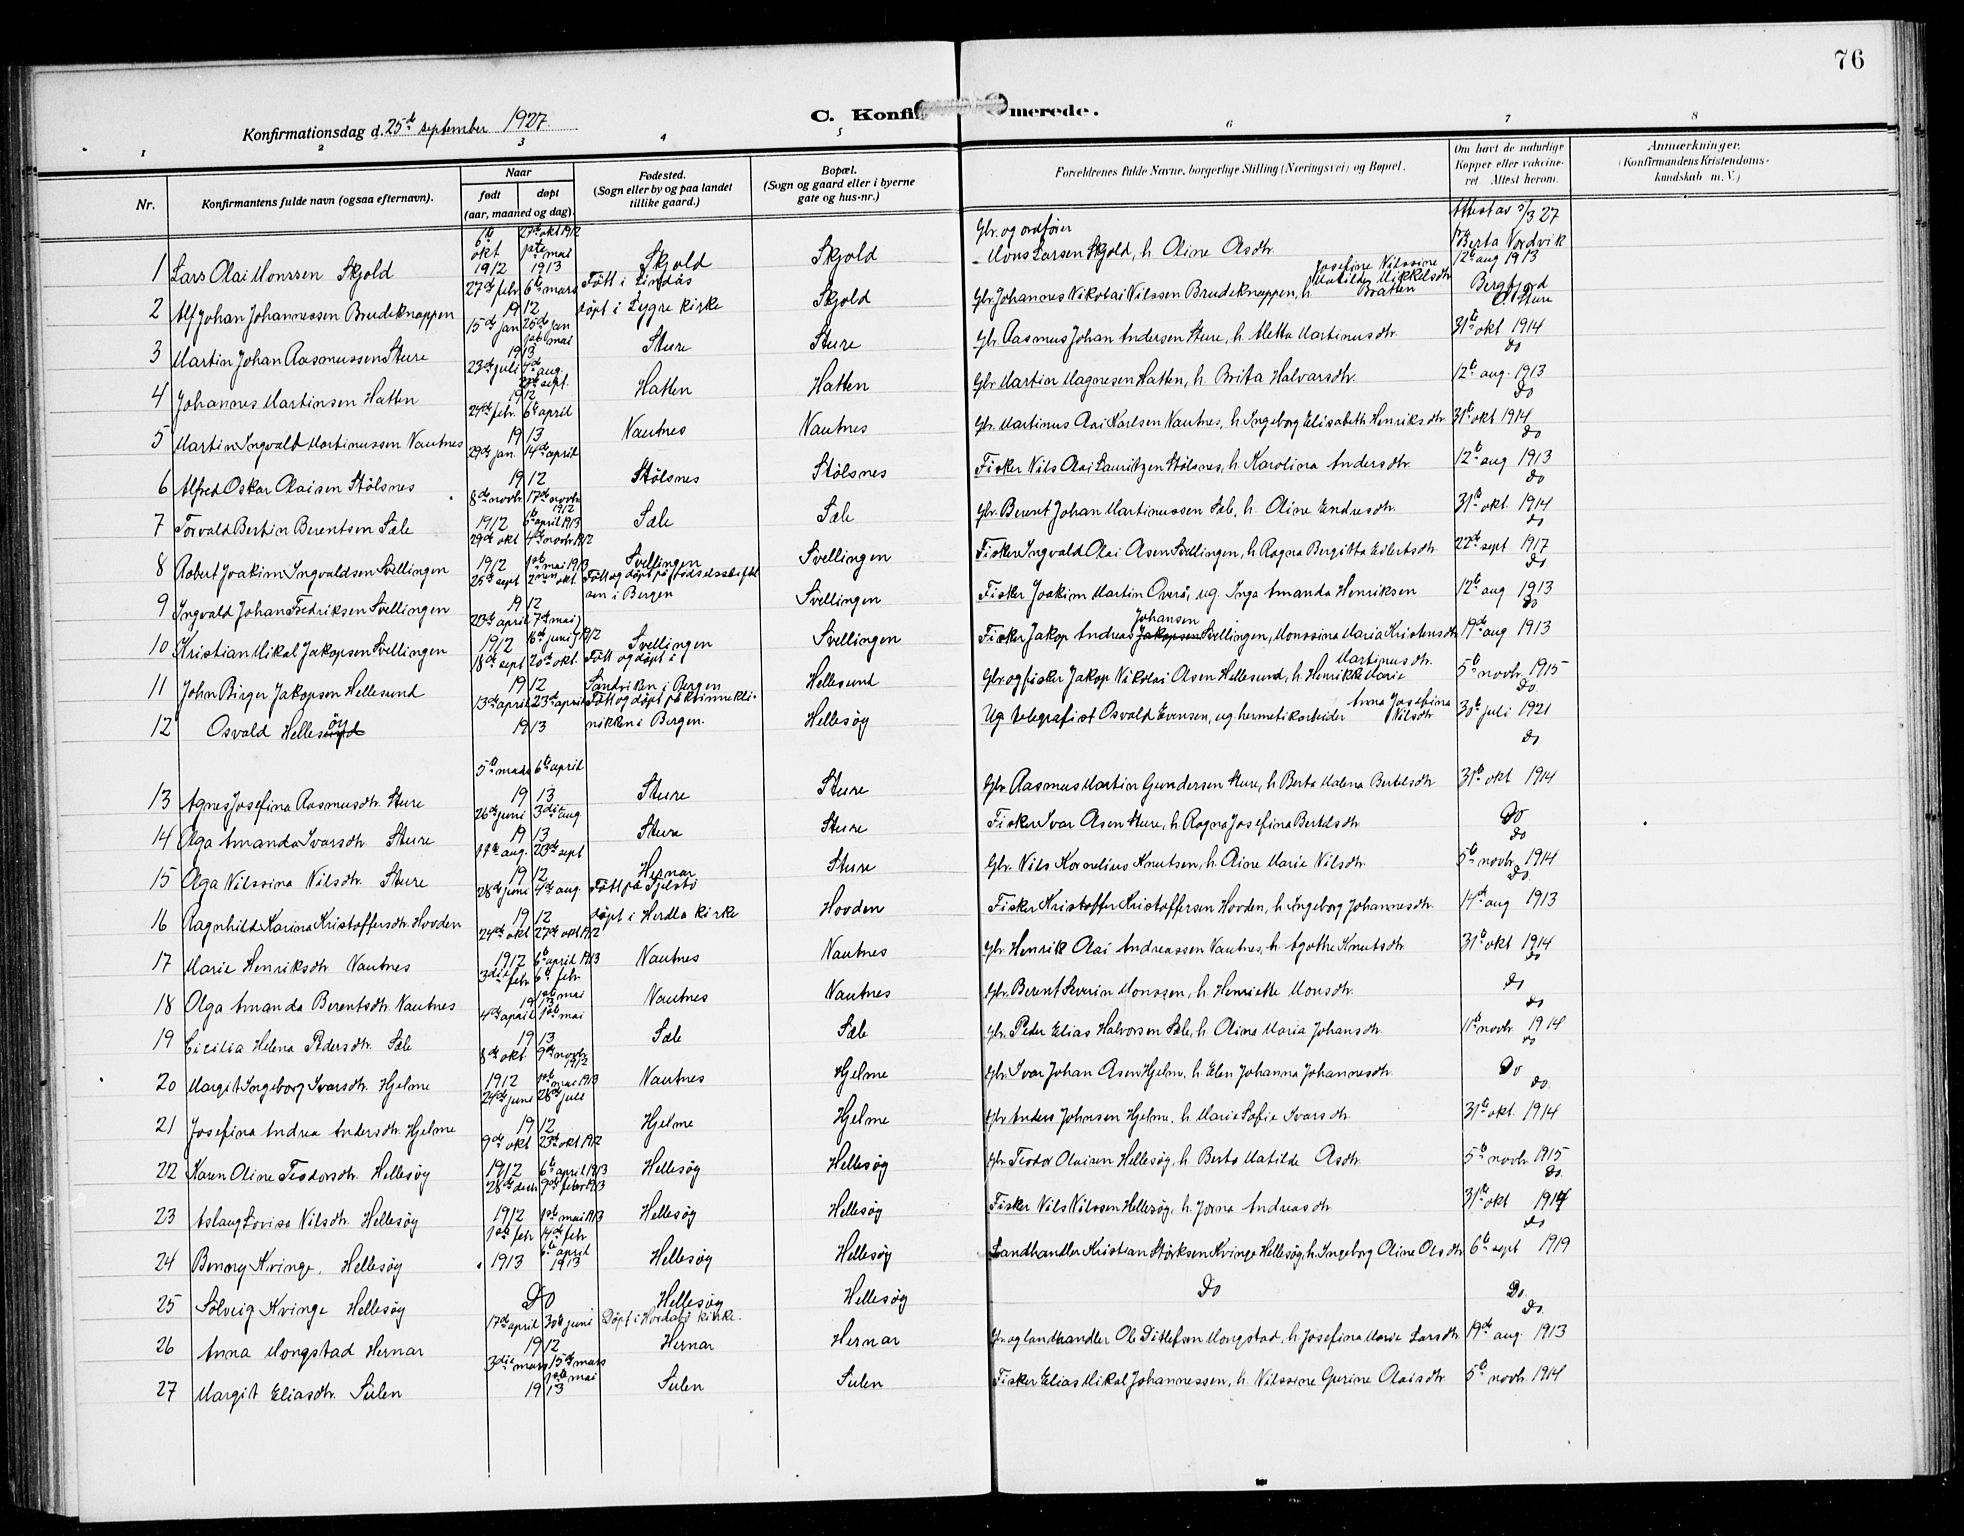 76
C. Konfirmerede.
Konfirmationsdag d. 25de september 1927.
1 2 3 4 5 6 7 8
Nr.
Konfirmantens fulde navn (ogsaa efternavn).
Naar
født døpt
(aar, maaned og dag).
Fødested.
(Sogn eller by og paa landet
tillike gaard.)
Bopæl.
(Sogn og gaard eller i byerne
gate og hus-nr.)
Forældrenes fulde Navne, borgerlige Stilling (Næringsvei) og Bopæl.
Om havt de naturlige
Kopper eller vakcine-
ret Attest herom.
Anmærkninger.
(Konfirmandens Kristendoms-
kundskab m. V.)
1 Lars Olai Monssen Skjold 6te okt 1912 27de okt 1912 1ste mai 1913 Skjold Skjold Gbr. og ordfører Mons Larsen Skjold, h. Oline Asdtr. Attest av 5/3 27 Berta Nordvik
2 Alf Johan Johannessen Brudeknappen 27de febr. 6te mars 1912 Født i Lindås døpt i Lygre kirke Skjold Gbr. Johannes Nikolai Nilssen Brudeknappen, h. Josefine Nilssine Matilde Mikkelsdtr. Bratten 12te aug 1913 Bergfjord
3 Martin Johan Rasmussen Sture 15de jan 25de jan 1ste mai 1913 Sture Sture Gbr. Rasmus Johan Andersen Sture, h. Metta Martinusdtr. 31te okt 1914 do
4 Johannes Martinsen Hatten 23de juli 4de aug. 22de sept. 1912 Hatten Hatten Gbr. Martin Magnesen Hatten, h. Brita Halvarsdtr. 12te aug. 1913 do
5 Martin Ingvald Martinussen Nautnes 24de febr. 6te april 1913 Nautnes Nautnes Gbr. Martinus Olai Karlsen Nautnes, h. Ingeborg Elisabeth Henriksdtr. 31te okt 1914 do
6 Alfred Oskar Olaisen Stølsnes 29de jan. 14de april 1912 Stølsnes Stølsnes Fisker Nils Olai Lauritzen Stølsnes, h. Karolina Andersdtr. 12te aug 1913 do
7 Torvald Bertin Berentsen Sæle 8de novbr. 1912 17de novbr. 1912 6te april 1913 Sæle Sæle Gbr. Berent Johan Martinussen Sæle, h. Oline Endresdtr. 31te okt. 1914 do
8 Robert Joakim Ingvaldsen Svellingen 29de okt 1912 4de novbr 1912 1ste mai 1913 Svellingen Svellingen Fisker Ingvald Olai Olsen Svellingen, h. Ragna Bergitta Eilertsdtr. 22de sept 1917 do
9 Ingvald Johan Fredriksen Svellingen 25de sept 2nen okt 1912 Født og døpt på fødselsstiftelsen i Bergen Svellingen Fisker Joakim Martin Overå, ug. Inga Amanda Henriksen 12te aug 1913 do
10 Kristian Mikal Jakopsen Svellingen 20de april 1912 7de mai) 6te juni) 1912 Svellingen Svellingen Fisker Jakop Andreas Johansen Jakopsen Svellingen, Monssina Maria Kristensdtr 19de aug 1913
11 John Birger Jakopsen Hellesund 18de sept 20de okt. 1912 Født og døpt i Sandviken i Bergen Hellesund Gbr. og fisker Jakop Nikolai Olsen Hellesund, h. Henrikke Marie Martinusdtr. 5te novbr. 1915 do.
12 Osvald Hellesund öy 13de april 23de april 1913 Født og døpt på kvinneklinikken i Bergen. Hellesøy Ug telegrafist Osvald Evensen, ug. hermetikarbeider Anna Josefina Nilsdtr 30te juli 1921 do
13 Agnes Josefina Rasmusdtr. Sture 5te mars 6te april 1913 Sture Sture Gbr. Rasmus Martin Gundersen Sture, h. Berta Malena Bertelsdtr 31te okt 1914
14 Olga Amanda Ivarsdtr. Sture 26de juni 3die aug 1913 Sture Sture Fisker Ivar Olsen Sture, h. Ragna Josefina Bertelsdtr. Do do
15 Olga Nilssina Nilsdtr. Sture 14de aug. 23de sept 1912 Hernar Sture Gbr. Nils Kornelius Knutsen, h. Oline Marie Nilsdtr. 5te novbr. 1914 do.
16 Ragnhild Karina Kristoffersdtr. Hovden 28de juni 4de aug. 1912 Født på Tjeldstø døpt i Herdla kirke Hovden Fisker Kristoffer Kristoffersen Hovden, h. Ingeborg Johannesdtr. 14de aug 1913
17 Marie Henriksdtr Nautnes 24de okt 1912 27de okt 1912 6te april 1913 Nautnes Nautnes Gbr. Henrik Olai Andreassen Nautnes, h. Agothe Knutsdtr. 31te okt 1914 do
18 Olga Amanda Berentsdtr. Nautnes 3die febr 6te febr 1ste mai 1913 Nautnes Nautnes Gbr. Berent Severin Monssen, h. Henriette Monsdtr. do do
19 Cicilia Helena Pedersdtr. Sæle 4de april 1ste mai 1913 Sæle Sæle Gbr. Peder Elias Halvorsen Sæle, h. Oline Maria Johansdtr. 11te novbr. 1914 do
20 Margit Ingeborg Ivarsdtr. Hjelme 8de okt 1912 9de novbr 1912 1ste mai 1913 Nautnes Hjelme Gbr. Ivar Johan Olsen Hjelm, h. Elen Johanna Johannesdtr. Do do.
21 Josefina Andrea Andersdtr. Hjelme 24de juni 28de juli 1912 Hjelme Hjelme Gbr Anders Johnsen Hjelme, h. Marie Sofie Ivarsdtr. 31te okt. 1914
22 Karen Oline Teodorsdtr. Hellesøy 9de okt 1912 23de okt 1912 6te april 1913 Hellesøy Hellesøy Gbr. Teodor Olaisen Hellesøy, h. Berta Matilde Asdtr. 5te novbr. 1915 do.
23 Aslaug Lovise Nilsdtr. Hellesøy 28de decbr 1912 9de febr 1913 1ste mai 1913 Hellesøy Hellesøy Fisker Nils Nilssen Hellesøy, h. Jorna Andreasdtr. 31te okt 1914 do
24 Benory Kvinge, Hellesøy 1ste febr 1913 14de febr 6te april 1913 Hellesøy Hellesøy Landhandler Kristian Størksen Kvinge Hellesøy, h. Ingeborg Oline Olsdtr 6te sept 1919
25 Solveig Kvinge Hellesøy Do Hellesøy Hellesøy Do Do. do.
26 Anna Mongstad Hernar 17de april 30te juni 1912 Døpt i Hordabø kirke. Hernar Hernar Gbr. og landhandler Ole Ditlefsen Mongstad, h. Josefina Marie Larsdtr 19de aug. 1913
27 Margit Eliasdtr. Sulen 3die mars 15de mars 1ste mai 1913 Sulen Sulen Fisker Elias Mikal Johannessen, h. Nilssine Gurine Olaisdtr. 5te novbr. 1914